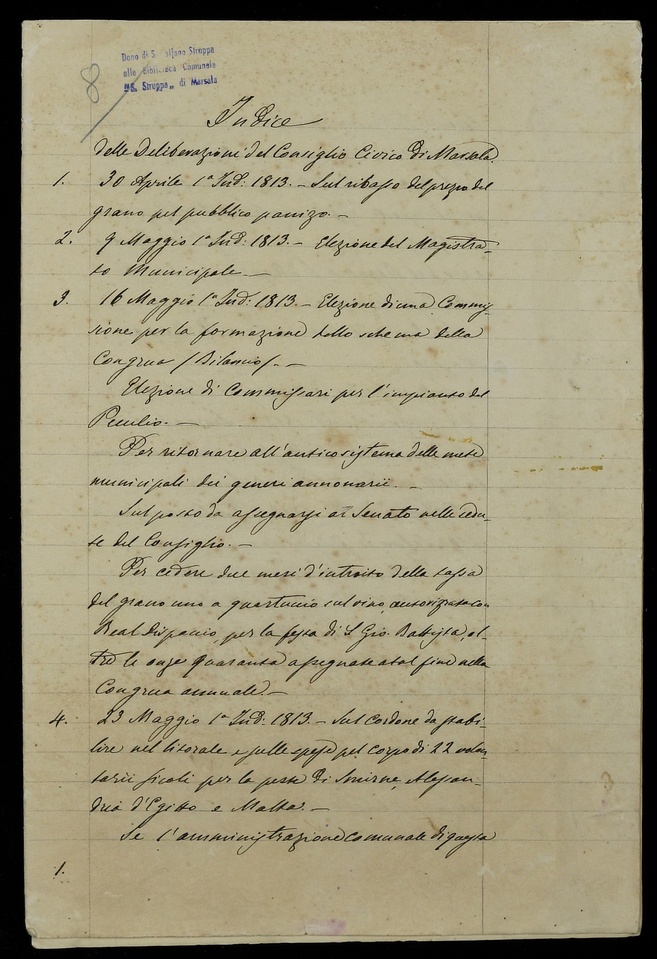 8
Dono di S. Struppa
alla Biblioteca Comunale
"S. Struppa" di Marsala
Indice
delle Deliberazioni del Consiglio Civico di Marsala.
1. 30 Aprile 1ª Ind: 1813. - Sul ribasso del prezzo del
grano pel pubblico panizo. -
2. 9 Maggio 1ª Ind: 1813. - Elezione del Magistra-
to Municipale. -
3. 16 Maggio 1ª Ind: 1813. - Elezione di una Commis-
sione per la formazione dello schema della
Congrua /Bilancio/. -
Elezione di Commissari per l'impianto del
Peculio. -
Per ritornare all'antico sistema delle mete
municipali dei generi annonarii. -
Sul posto da assegnarsi al Senato nelle sedu-
te del Consiglio. -
Per cedere due mesi d'introito della tassa
del grano uno a quartuccio sul vino, autorizzata con
Real Dispaccio, per la festa di S. Gio. Battista, ol
tre le onze quaranta assegnate a tal fine nella
Congrua annuale. -
4. 23 Maggio 1ª Ind: 1813. - Sul cordone da stabi-
lire nel litorale e sulle spese pel corpo di 22 volon-
tarii per la peste di Smirne, Alessan-
dria d'Egitto e Malta. -
Se l'amministrazione comunale di questa
1.